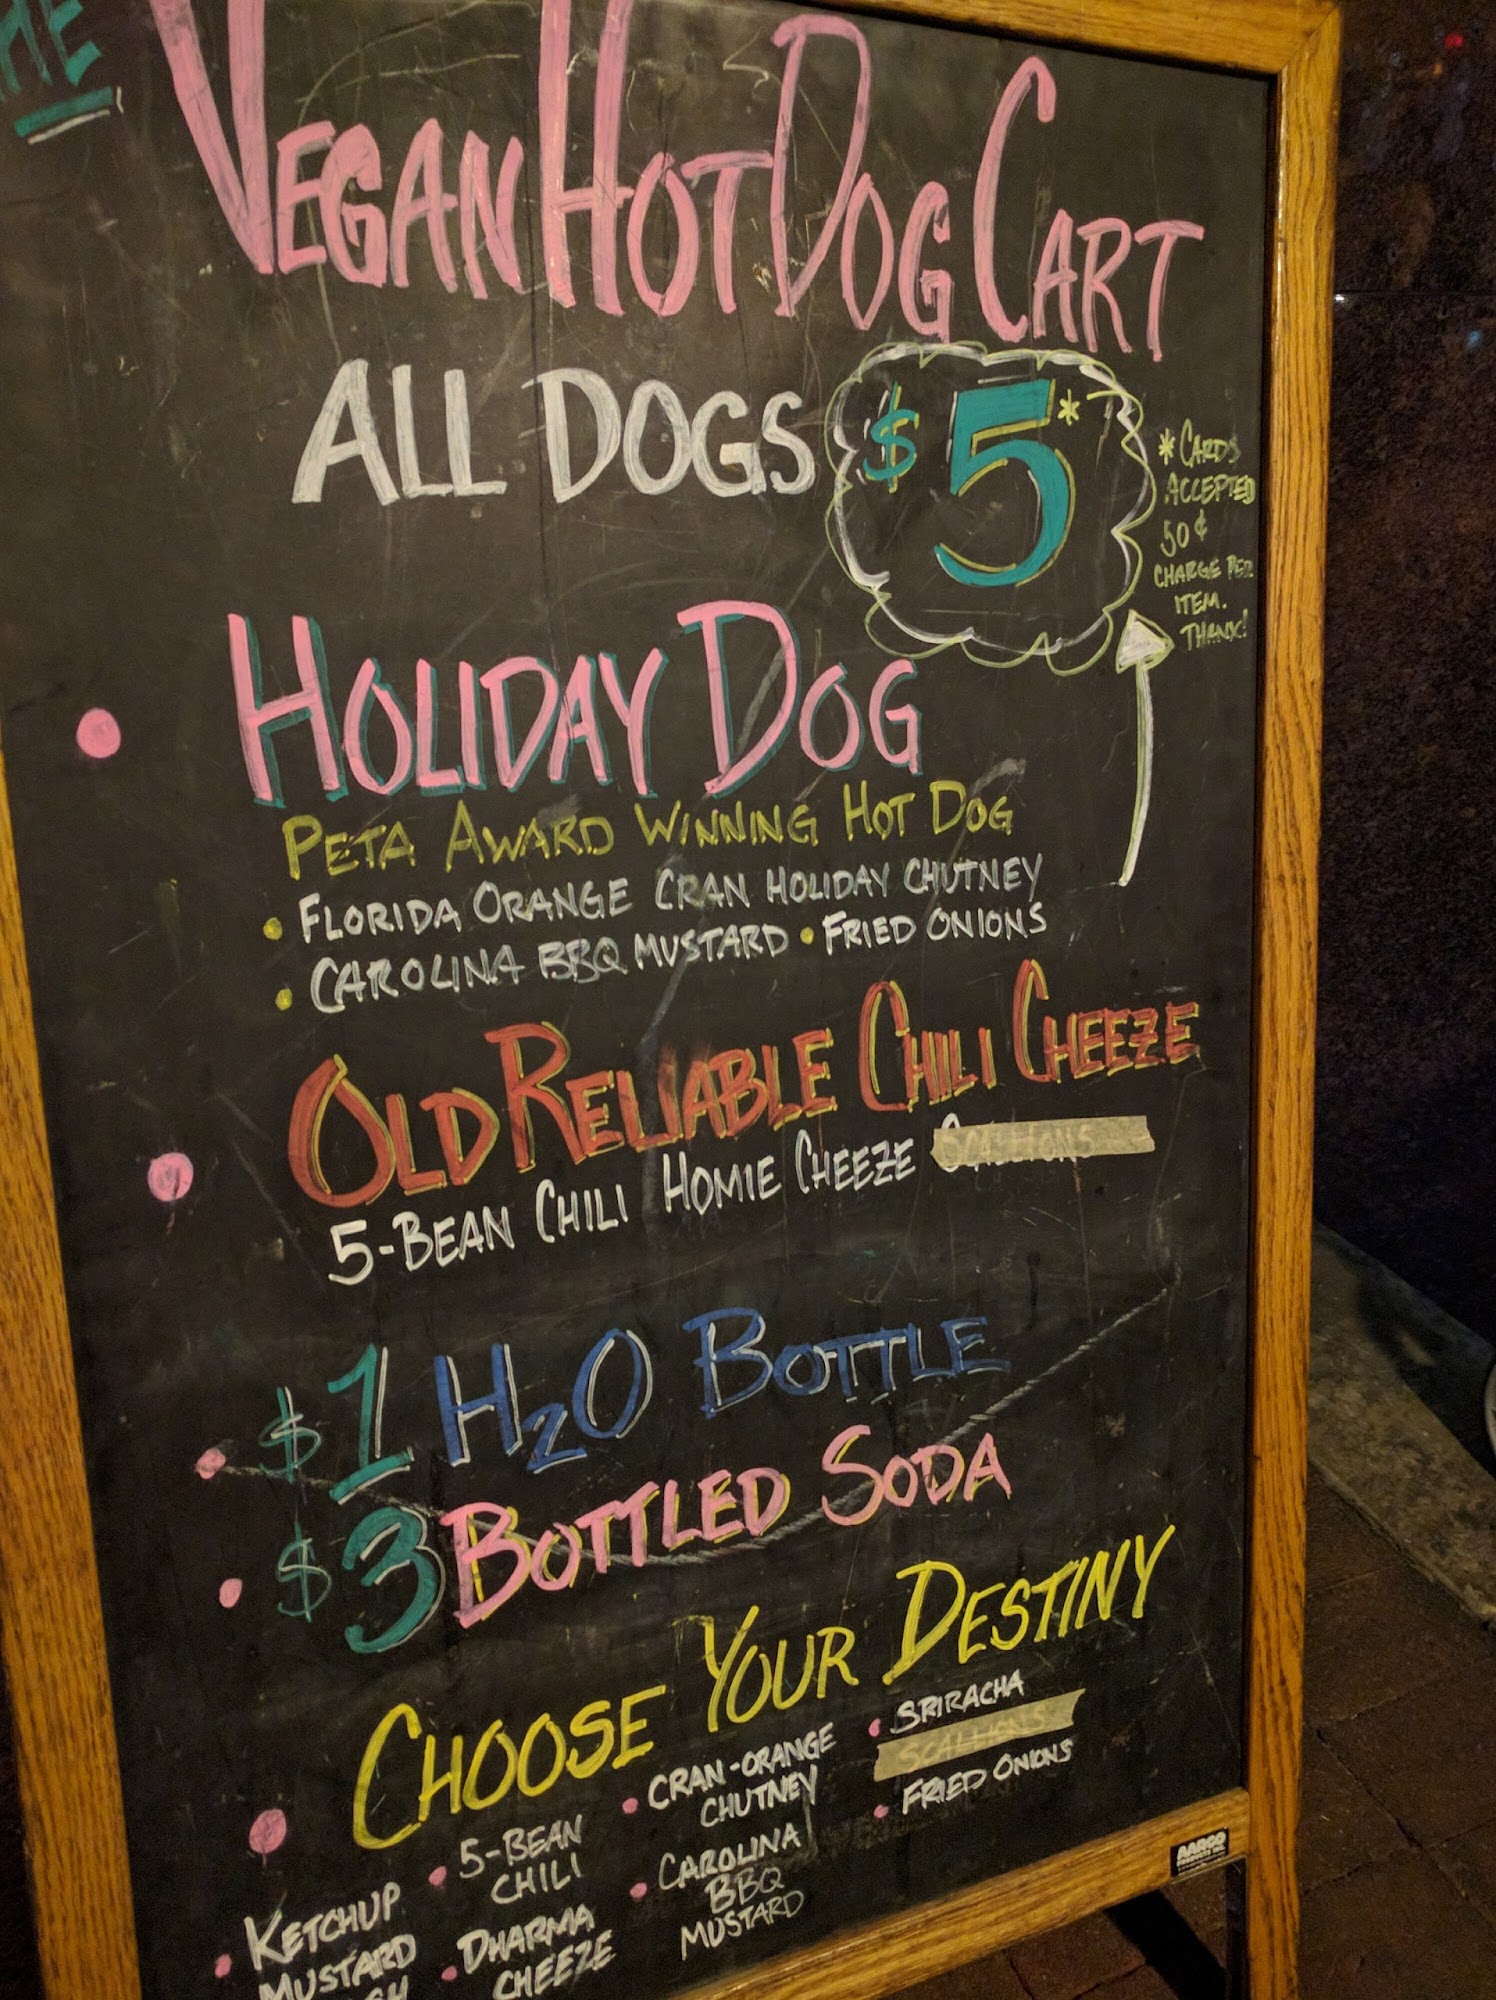 THE
VEGAN HOT DOG CART
ALL DOGS $5*
* CARDS
ACCEPTED
50¢
CHARGE PER
ITEM.
THANX!
• HOLIDAY DOG
PETA AWARD WINNING HOT DOG
• FLORIDA ORANGE CRAN HOLIDAY CHUTNEY
• CAROLINA BBQ MUSTARD • FRIED ONIONS
• OLD RELIABLE CHILI CHEEZE
5-BEAN CHILI HOMIE CHEEZE SCALLIONS
• $1 H2O BOTTLE
• $3 BOTTLED SODA
• CHOOSE YOUR DESTINY
• KETCHUP
MUSTARD
• 5-BEAN
CHILI
• DHARMA
CHEEZE
• CRAN-ORANGE
CHUTNEY
• CAROLINA
BBQ
MUSTARD
• SRIRACHA
SCALLIONS
• FRIED ONIONS
AARCO